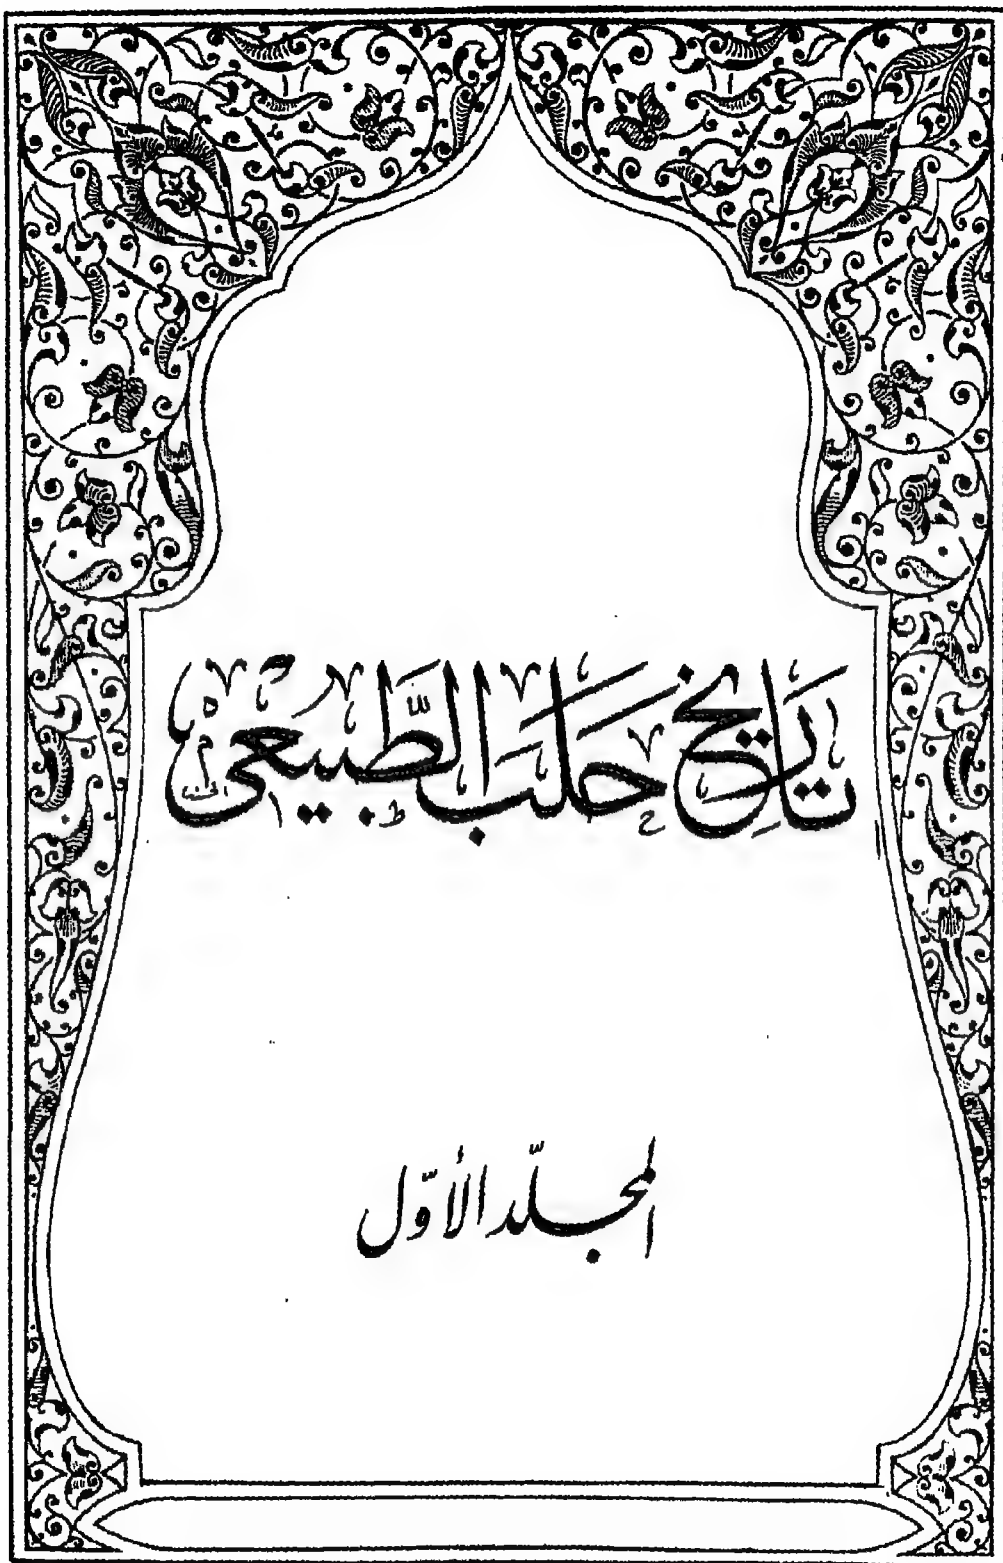 تَاريخ حَلَبَ الطَّبيعي
المجلّد الأوّل